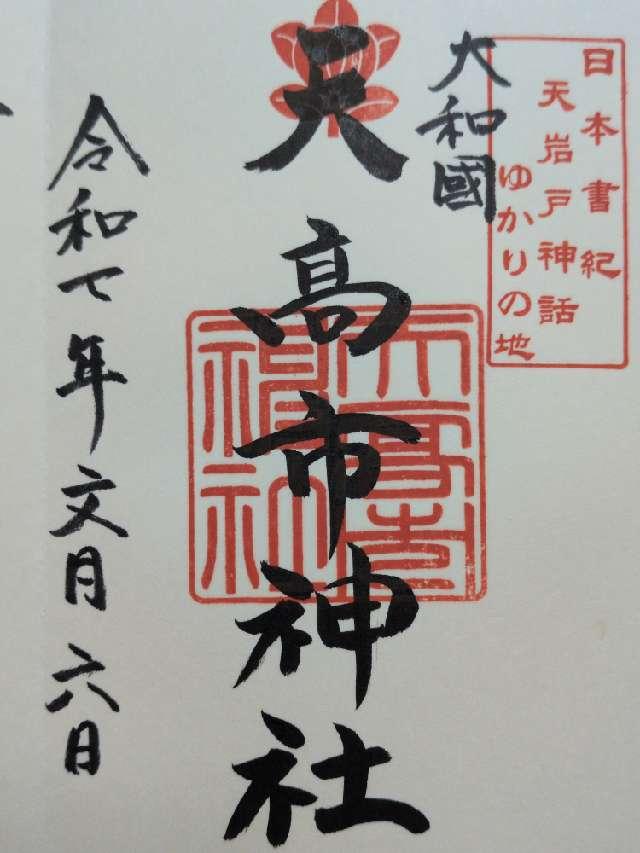 日本書紀
天岩戸神話
ゆかりの地
大和國
天高市神社
天高市
神社
令和七年文月六日